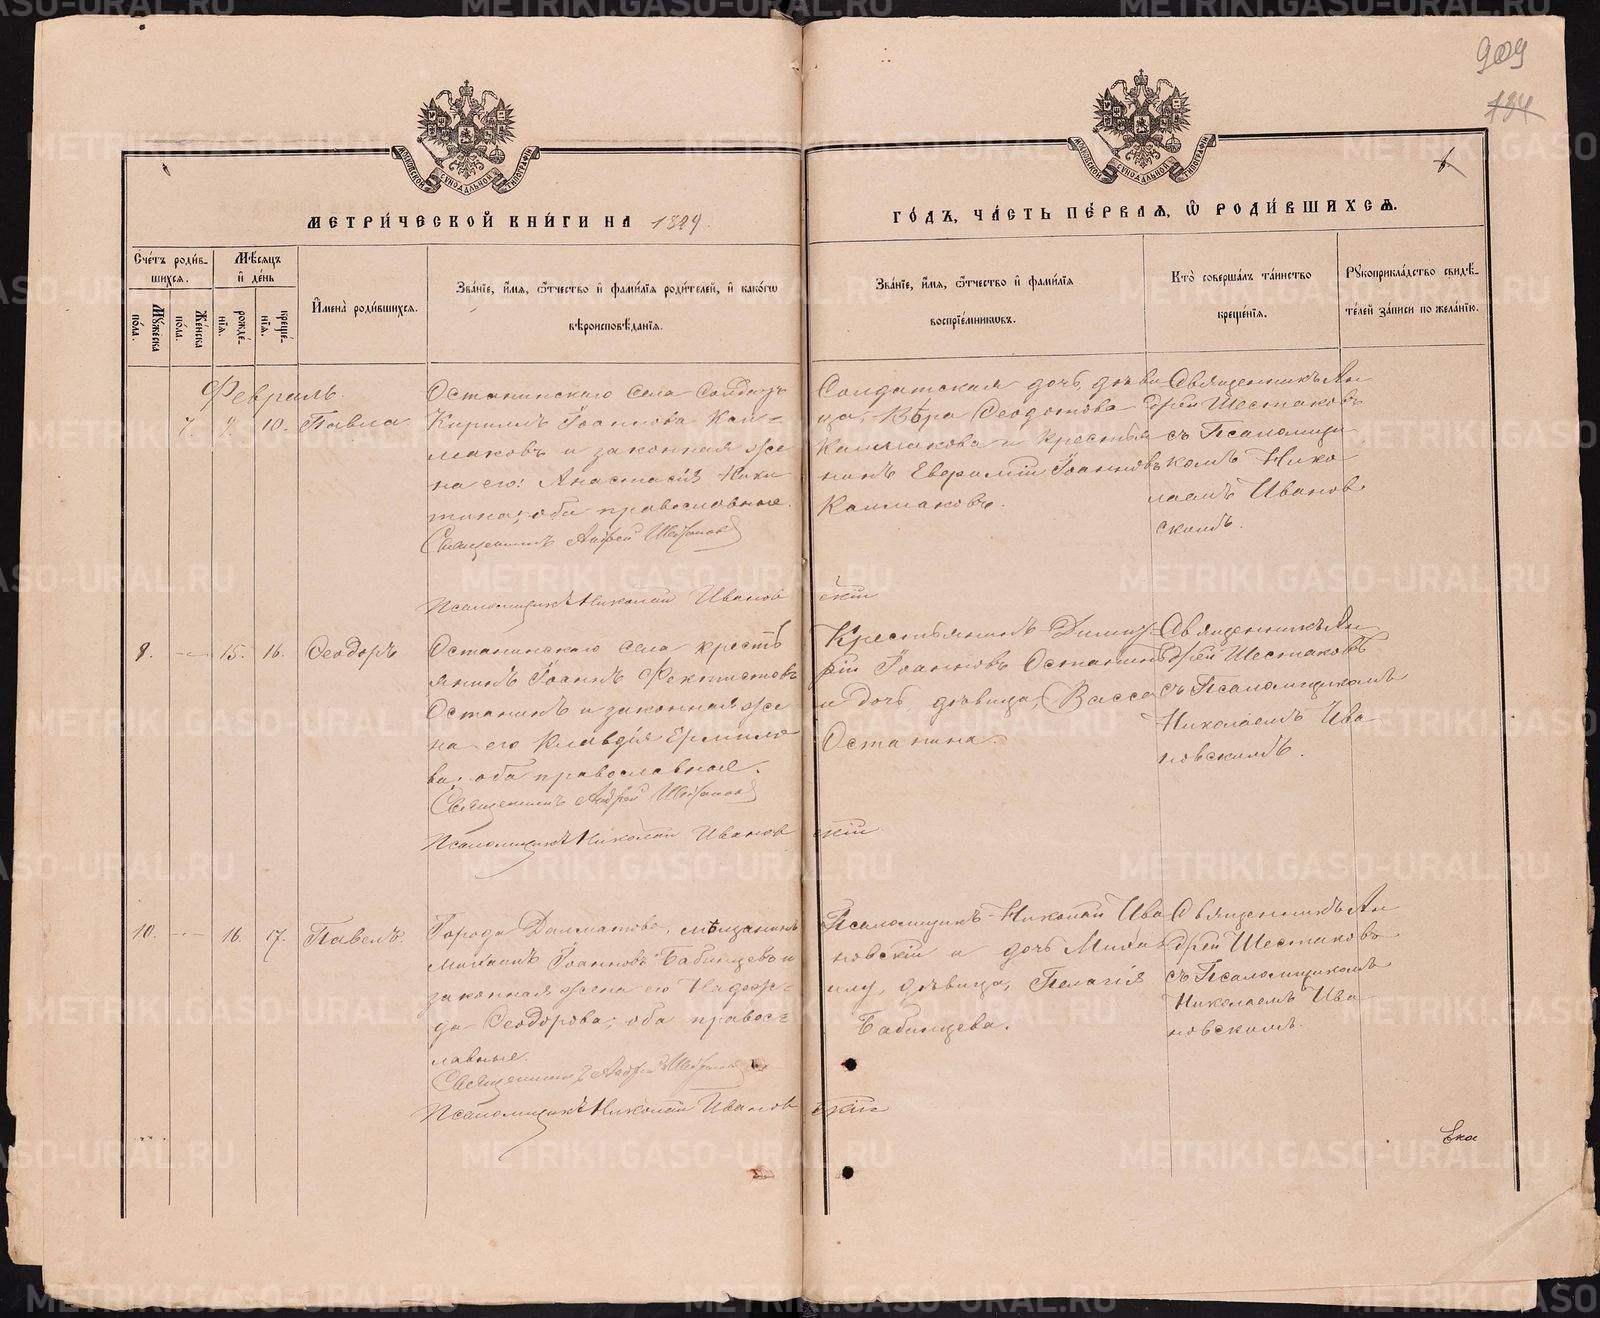 909
184
МОСКОВСКОЙ СУНОДАЛЬНОЙ ТИПОГРАФІИ
МОСКОВСКОЙ СУНОДАЛЬНОЙ ТИПОГРАФІИ
МЕТРИ́ЧЕСКОЙ КНИ́ГИ НА 1889.
ГО́ДЪ, ЧА́СТЬ ПЕ́РВАѦ, Ѡ РОДИ́ВШИХСѦ.
Сче́тъ роди́в-
шихся.
Мѣ́сяцъ
и де́нь
Му́жеска по́ла.
Же́нска по́ла.
рожде́-
нїя.
креще́-
нїя.
Имена̀ роди́вшихся.
Зва́нїе, и́мя, ѻ́тчество и фами́лїя роди́телей, и како́гѡ
вѣроисповѣ́данїя.
Зва́нїе, и́мя, ѻ́тчество и фами́лїя
воспрїе́мникѡвъ.
Кто̀ соверша́лъ та́инство
креще́нїя.
Рꙋкоприкла́дство свидѣ́-
телей за́писи по жела́нїю.
Февраль.
7. 9. 10. Павла
Останинскаго села солдатъ
Кириллъ Іоаннова Кал-
маковъ и законная же
на его: Анастасія Ники
тина; оба православные.
Священникъ Андрей Шестаковъ
Псаломщикъ Николай Иванов
скій
Солдатская дочь, дѣви
ца, Вѣра Ѳеодотова
Калмакова и крестья
нинъ Евфимій Іоанновъ
Калмаковъ.
Священникъ Ан
дрей Шестаковъ
съ Псаломщи
комъ Нико
лаемъ Иванов
скимъ.
8. — 15. 16. Ѳеодоръ
Останинскаго села кресть
янинъ Іоаннъ Фектистовъ
Останинъ и законная же
на его Клавдія Ермило
ва, оба православные.
Священникъ Андрей Шестаковъ
Псаломщикъ Николай Иванов
скій
Крестьянинъ Димит
рій Іоанновъ Останинъ
и дочь, дѣвица, Васса
Останина.
Священникъ Ан
дрей Шестаковъ
съ Псаломщикомъ
Николаемъ Ива
новскимъ.
10. — 16. 17. Павелъ.
Города Далматова, мѣщанинъ
Михаилъ Іоанновъ Бабинцевъ и
законная жена его Надеж-
да Ѳеодорова; оба правос-
лавные.
Священникъ Андрей Шестаковъ
Псаломщикъ Николай Иванов
скій
Псаломщикъ Николай Ива
новскій и дочь Миха
илу, дѣвица, Пелагія
Бабинцева.
Священникъ Ан
дрей Шестаковъ
съ Псаломщикомъ
Николаемъ Ива
новскимъ.
Ека